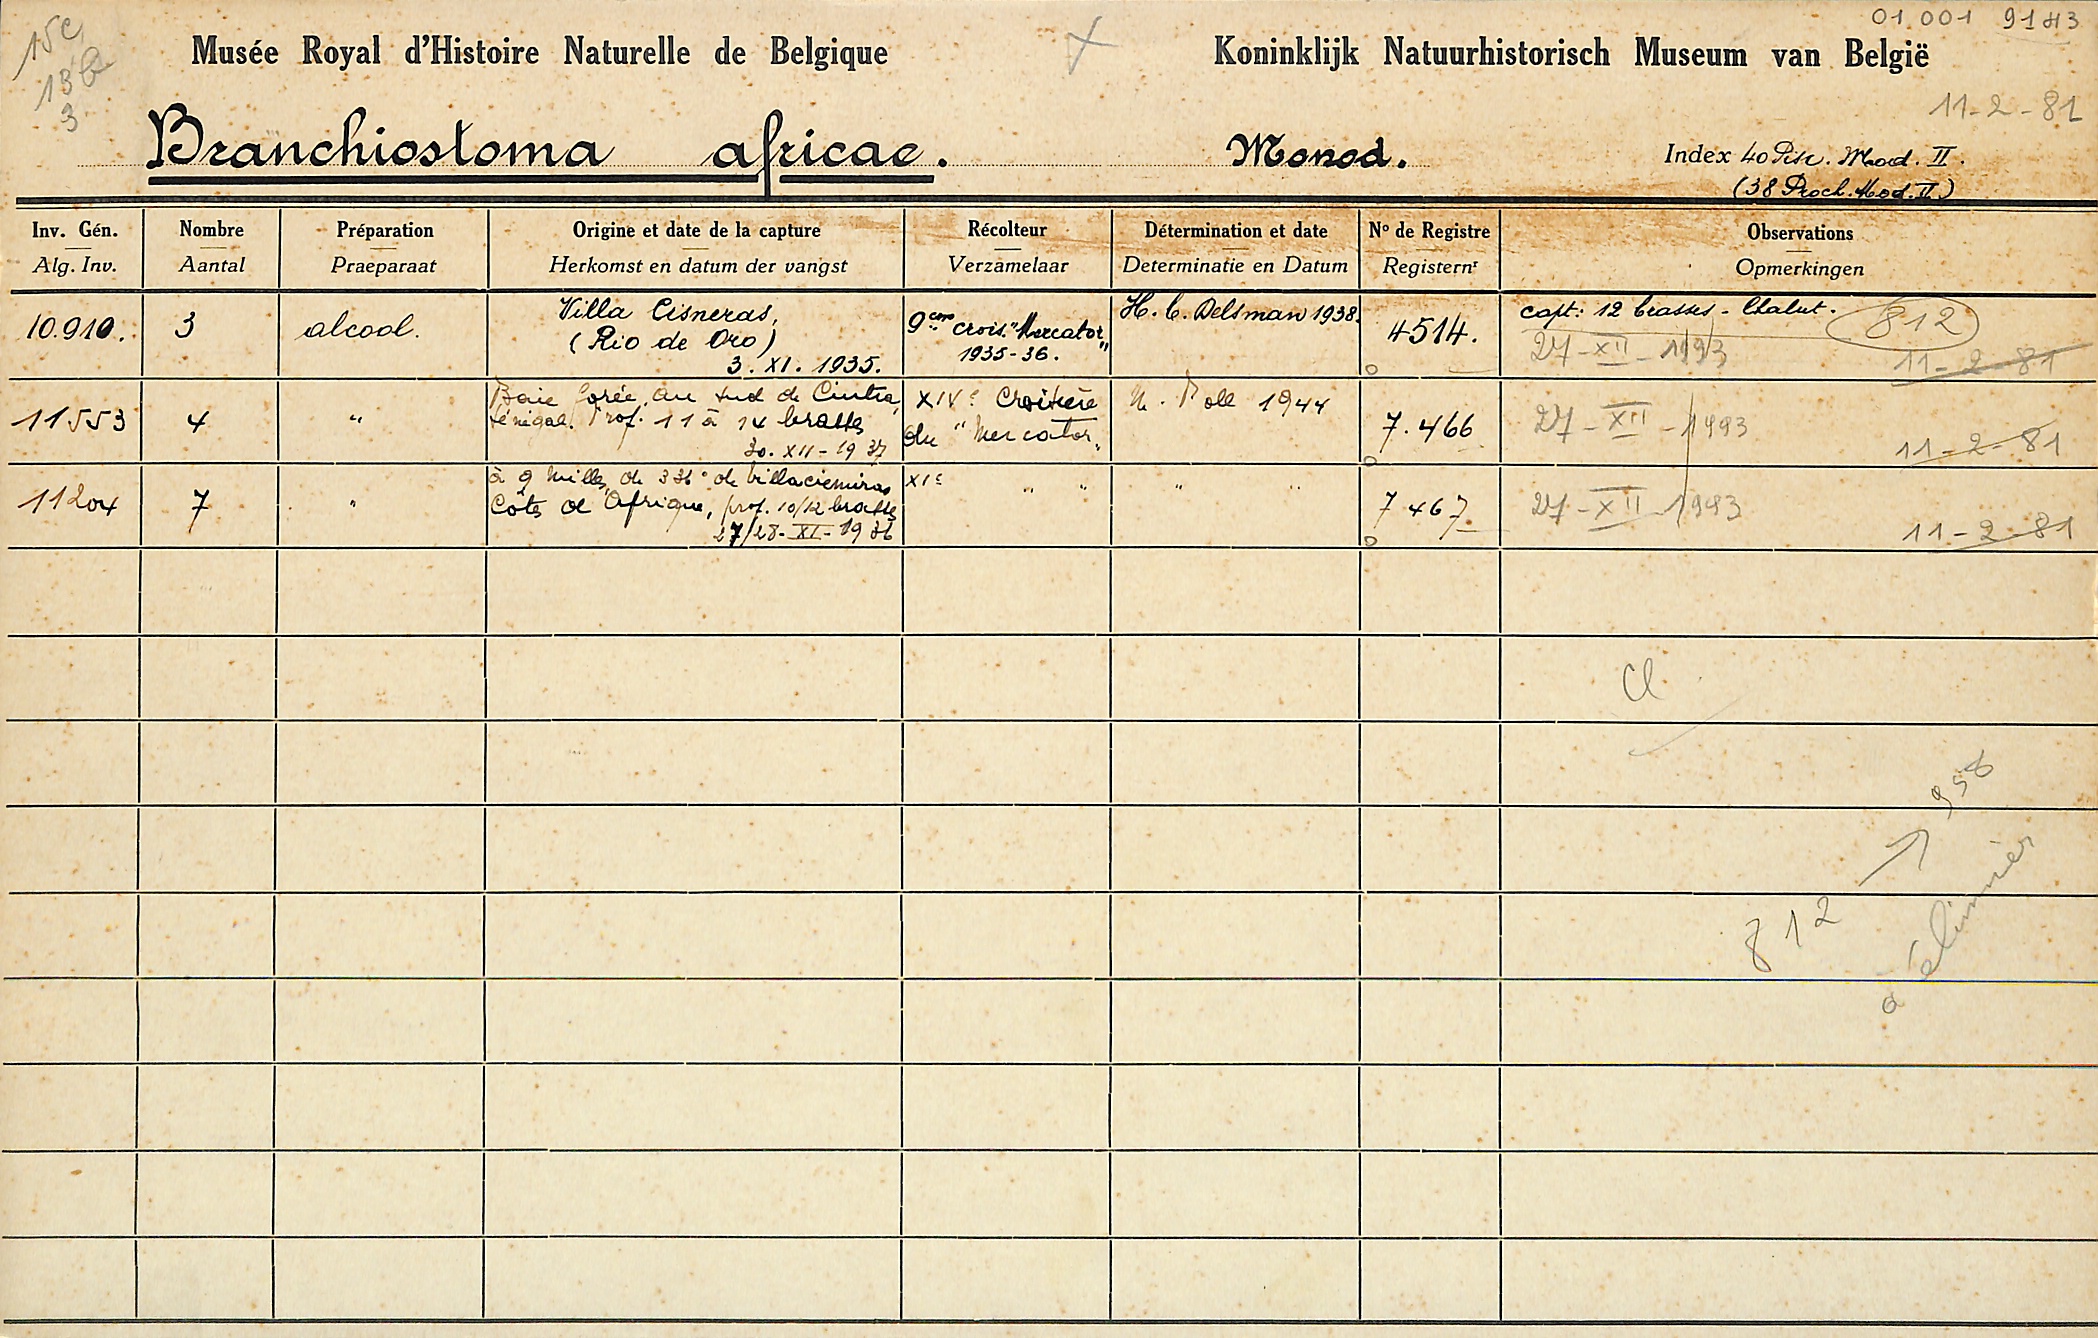 15c
13b
3
01.001 9183
Musée Royal d'Histoire Naturelle de Belgique
Koninklijk Natuurhistorisch Museum van België
11-2-81
Branchiostoma africae.
Monod.
Index 40 Pisc. Mod. II.
(38 Proch. Mod. II)
Inv. Gén.
Alg. Inv.
Nombre
Aantal
Préparation
Praeparaat
Origine et date de la capture
Herkomst en datum der vangst
Récolteur
Verzamelaar
Détermination et date
Determinatie en Datum
Nº de Registre
Registernr
Observations
Opmerkingen
10.910.
3
alcool.
Villa Cisneras,
(Rio de Oro)
3. XI. 1935.
9eme crois. "Mercator"
1935-36.
H. C. Delsman 1938.
4514.
capt: 12 brasses - Chalut.
812
27-XII-1993
11-2-81
11553
4
"
Baie Gorée, au sud de Cintra,
Sénégal. Prof. 11 à 14 brasses
30. XII-1937
XIVe Croisière
du "Mercator"
M. Poll 1944
7.466
27-XII-1993
11-2-81
11204
7
"
à 9 milles de 336° de villacieniros
Côte d'Afrique, prof. 10/12 brasses
27/28-XI-1936
XIe " "
" "
7467
27-XII-1993
11-2-81
Cl
812 → 958
à éliminer